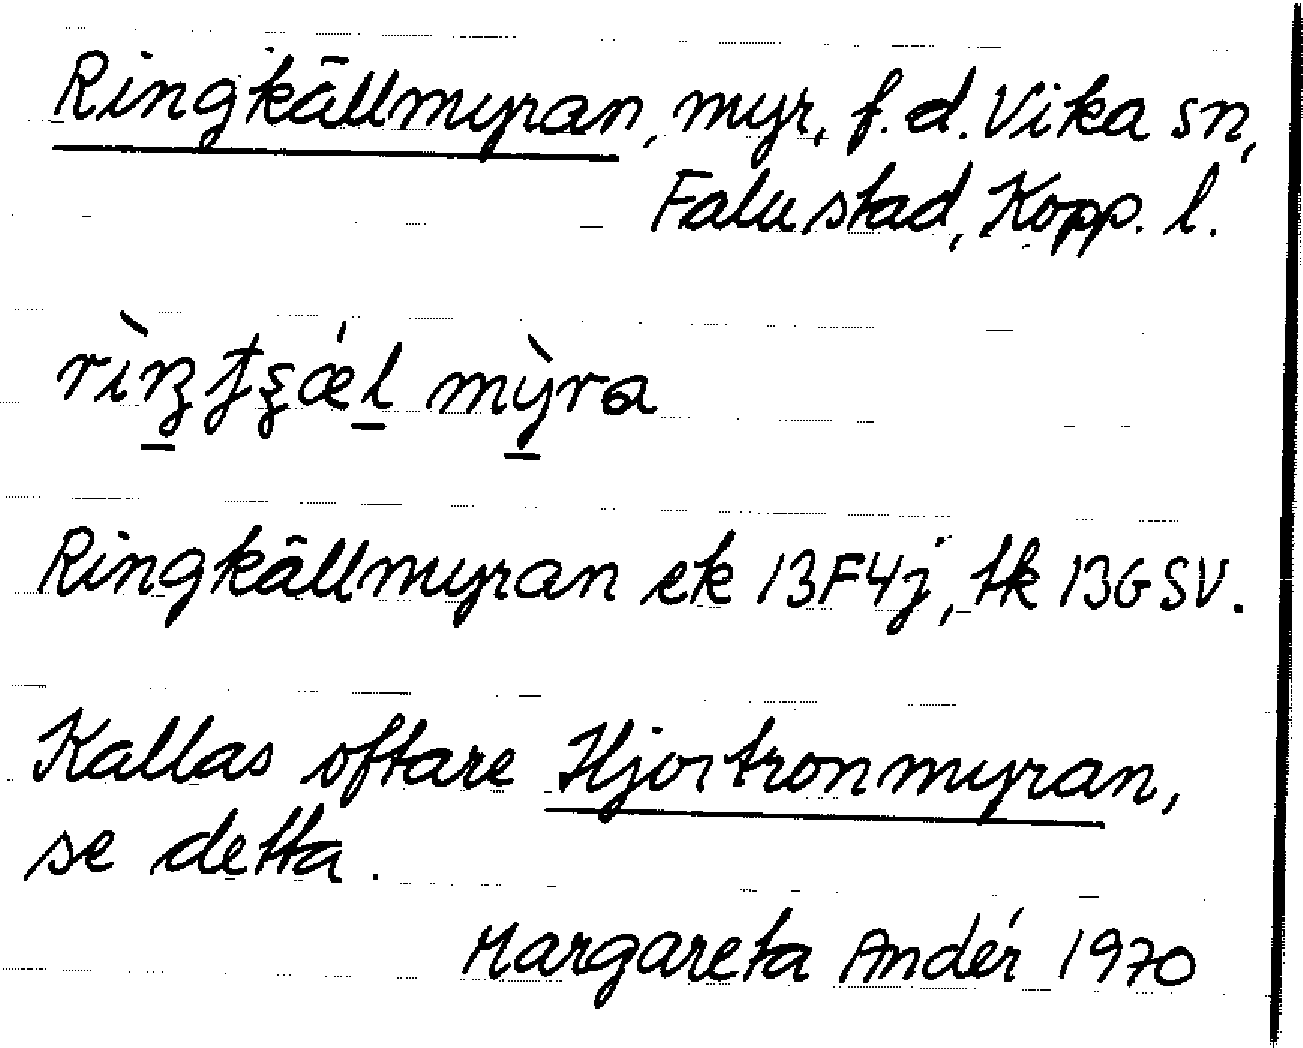 Ringkällmyran, myr, f.d. Vika sn,
Falu stad, Kopp. l.
Ringkällmyran ek 13F4j, tk 13GSV.
Kallas oftare Hjortronmyran,
se detta.
Margareta Andér 1970